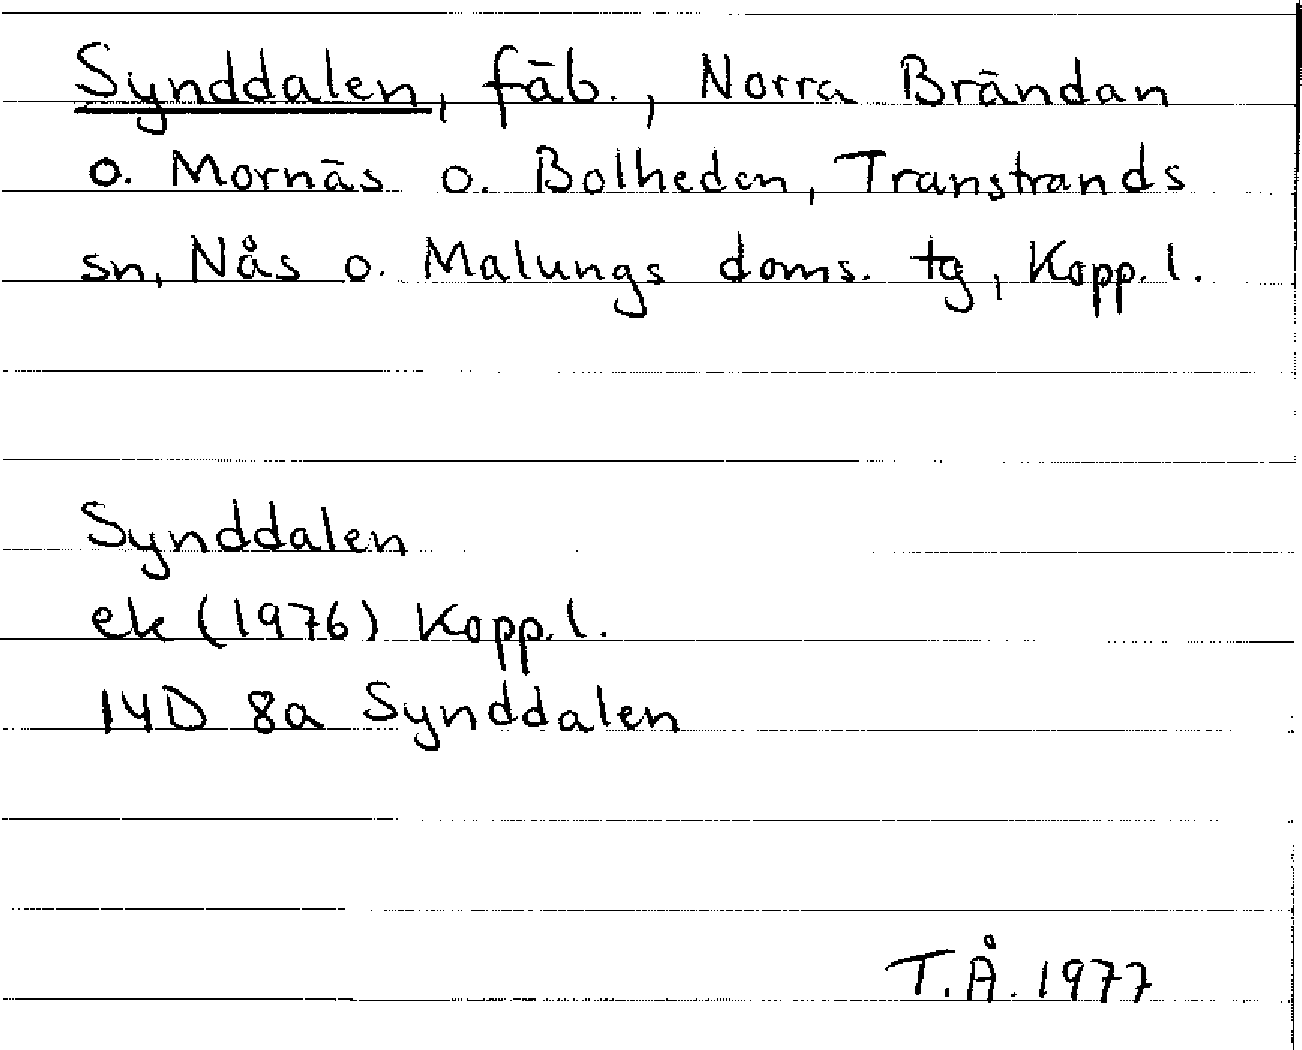 Synddalen, fäb., Norra Brändan
o. Mornäs o. Bolheden, Transtrands
sn, Nås o. Malungs doms. tg, Kopp. l.
Synddalen
ek (1976) Kopp. l.
14D 8a Synddalen
T.Å. 1977